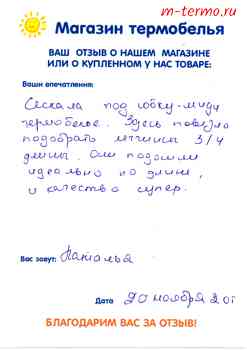 m-termo.ru
Магазин термобелья
ВАШ ОТЗЫВ О НАШЕМ МАГАЗИНЕ
ИЛИ О КУПЛЕННОМ У НАС ТОВАРЕ:
Ваши впечатления:
Искала под юбку-миди
термобелье. Здесь повезло
подобрать леггинсы 3/4
длины. Они подошли
идеально по длине,
и качество супер.
Вас зовут: Наталья
Дата 20 ноября 20
БЛАГОДАРИМ ВАС ЗА ОТЗЫВ!